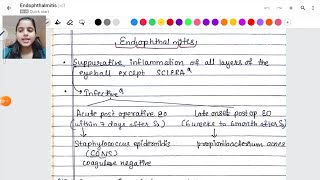 Endophthalmitis.pdf
Endophthalmitis
• Suppurative inflammation of all layers of the
eyeball except SCLERA*
• Infective*
Acute post operative EO late onset post op. EO
(within 7 days after Sx) (6 weeks to 6 month after Sx)
Staphylococcus epidermidis propionibacterium acnes
(CONS)
coagulase negative